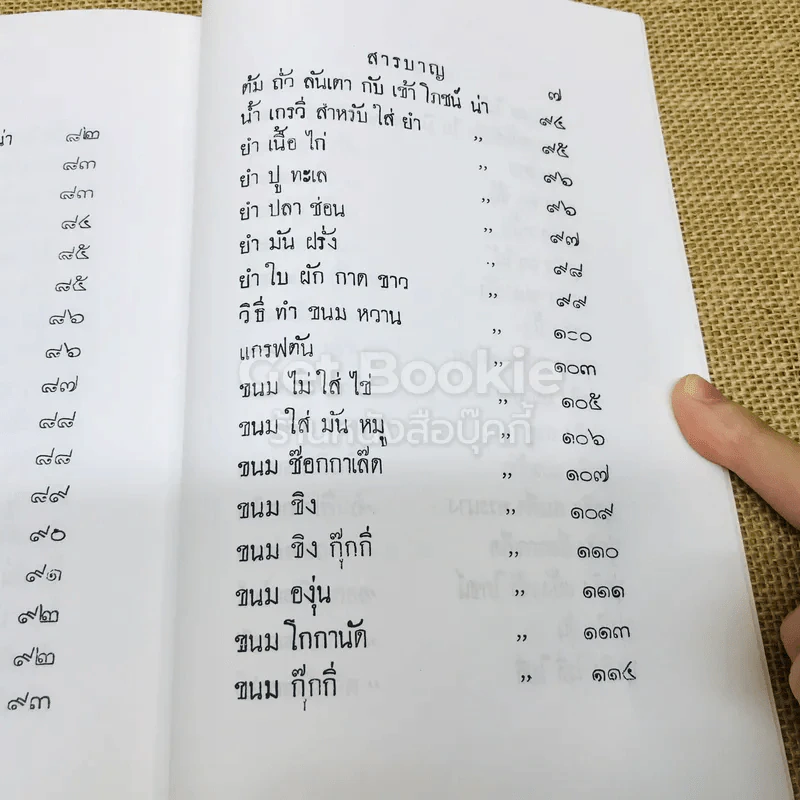 น่า ๘๒
๘๓
๘๓
๘๔
๘๕
๘๕
๘๖
๘๖
๘๗
๘๘
๘๘
๘๙
๙๐
๙๑
๙๒
๙๒
๙๓
สารบาญ ๗
ต้ม ถั่ว ลันเตา กับ เข้า โภชน์ น่า ๙๔
น้ำ เกรวี่ สำหรับ ใส่ ยำ ,, ๙๕
ยำ เนื้อ ไก่ ,, ๙๖
ยำ ปู ทะเล ,, ๙๖
ยำ ปลา ช่อน ,, ๙๗
ยำ มัน ฝรั่ง ,, ๙๘
ยำ ใบ ผัก กาด ขาว ,, ๙๙
วิธี ทำ ขนม หวาน ,, ๑๐๐
แกรฟตัน ,, ๑๐๓
ขนม ไม่ ใส่ ไข่ ,, ๑๐๕
ขนม ใส่ มัน หมู ,, ๑๐๖
ขนม ช๊อกกาเล๊ต ,, ๑๐๗
ขนม ขิง ,, ๑๐๙
ขนม ขิง กุ๊กกี่ ,, ๑๑๐
ขนม องุ่น ,, ๑๑๑
ขนม โกกานัด ,, ๑๑๓
ขนม กุ๊กกี่ ,, ๑๑๔
Get Bookie
ร้านหนังสือบุ๊คกี้